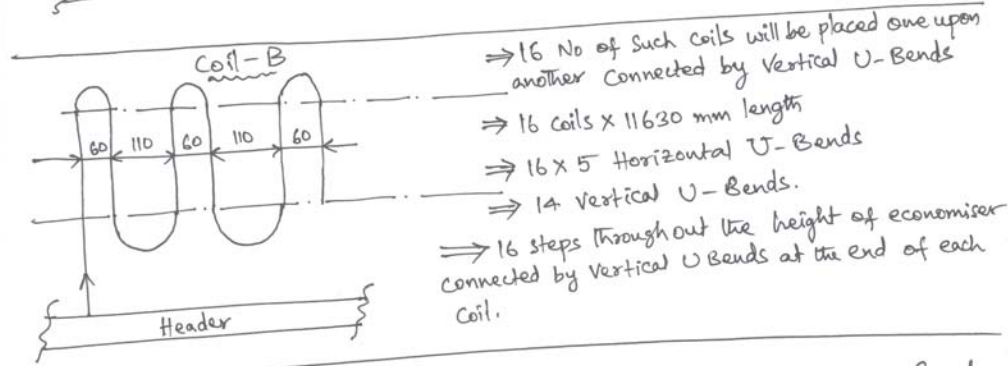 Coil-B
60 110 60 110 60
Header
⇒ 16 No of Such coils will be placed one upon
another Connected by Vertical U-Bends
⇒ 16 coils x 11630 mm length
⇒ 16 x 5 Horizontal U-Bends
⇒ 14 Vertical U-Bends.
⇒ 16 steps throughout the height of economiser
connected by Vertical U Bends at the end of each
Coil.